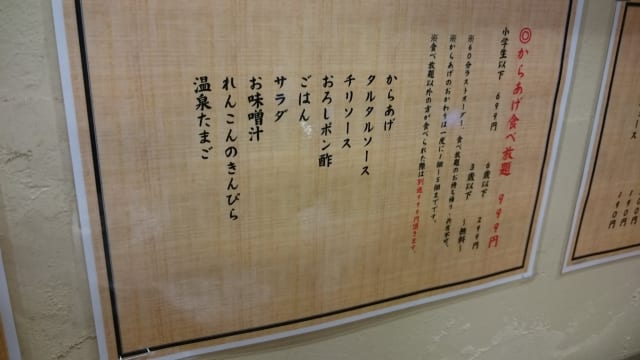 ◎からあげ食べ放題 999円
小学生以下 699円 6歳以下 299円
3歳以下 無料
※60分ラストオーダー、食べ放題のお持ち帰り
※からあげのおかわりは一度に1個~5個までです。
※食べ放題以外の方が食べられた際は別途999円頂きます。
からあげ
タルタルソース
チリソース
おろしポン酢
ごはん
サラダ
お味噌汁
れんこんのきんぴら
温泉たまご
190円
190円